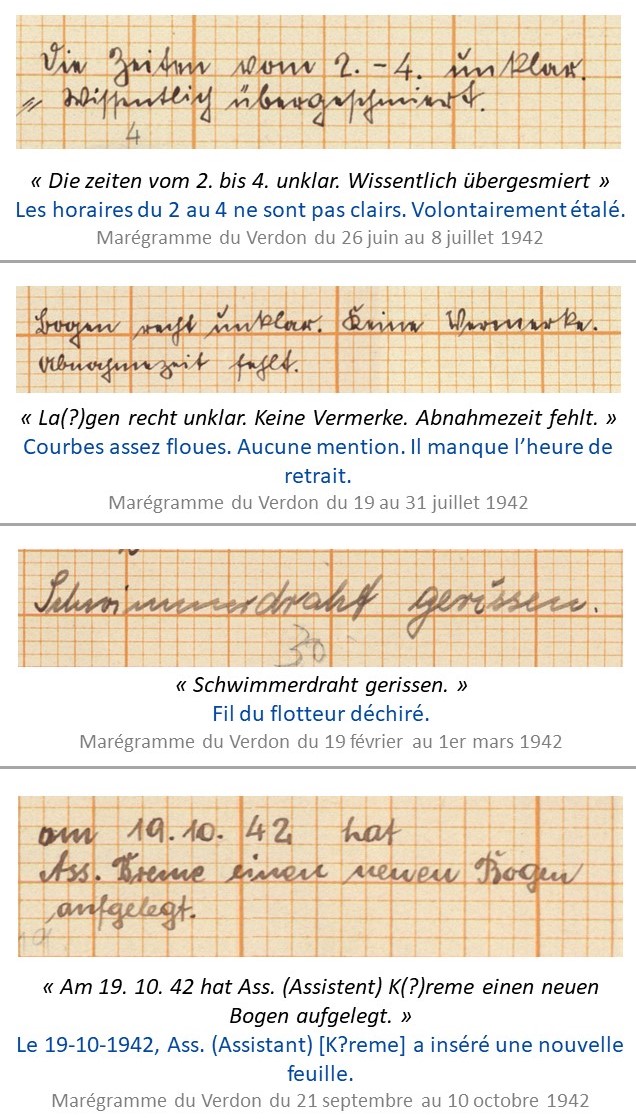 Die Zeiten vom 2. - 4. unklar.
Wissentlich übergeschmiert.
4
« Die zeiten vom 2. bis 4. unklar. Wissentlich übergesmiert »
Les horaires du 2 au 4 ne sont pas clairs. Volontairement étalé.
Marégramme du Verdon du 26 juin au 8 juillet 1942
Bogen recht unklar. Keine Vermerke.
Abnahmezeit fehlt.
« La(?)gen recht unklar. Keine Vermerke. Abnahmezeit fehlt. »
Courbes assez floues. Aucune mention. Il manque l’heure de
retrait.
Marégramme du Verdon du 19 au 31 juillet 1942
Schwimmerdraht gerissen.
30
« Schwimmerdraht gerissen. »
Fil du flotteur déchiré.
Marégramme du Verdon du 19 février au 1er mars 1942
am 19.10. 42 hat
Ass. einen neuen Bogen
aufgelegt.
« Am 19. 10. 42 hat Ass. (Assistent) K(?)reme einen neuen
Bogen aufgelegt. »
Le 19-10-1942, Ass. (Assistant) [K?reme] a inséré une nouvelle
feuille.
Marégramme du Verdon du 21 septembre au 10 octobre 1942